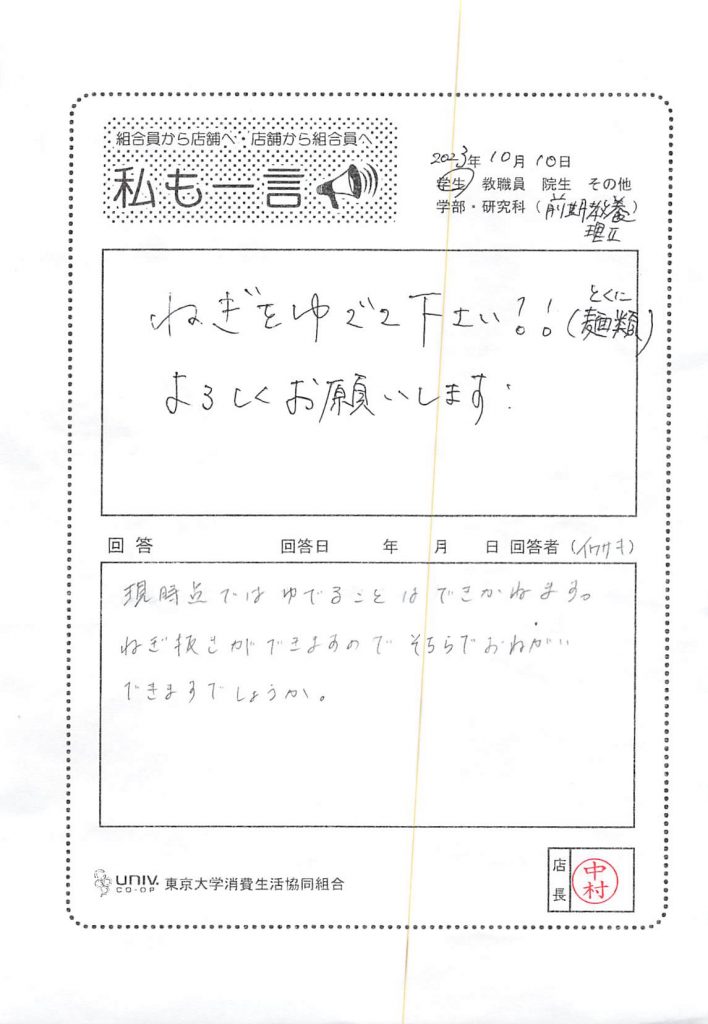 組合員から店舗へ・店舗から組合員へ
私も一言
2023年10月10日
学生 教職員 院生 その他
学部・研究科（前期教養
理Ⅱ）
ねぎをゆでて下さい!!(とくに麺類)
よろしくお願いします:
回答 回答日 年 月 日 回答者（イワサキ）
現時点ではゆでることはできかねます。
ねぎ抜きができますのでそちらでおねがい
できますでしょうか。
UNIV. CO-OP 東京大学消費生活協同組合
店長 中村